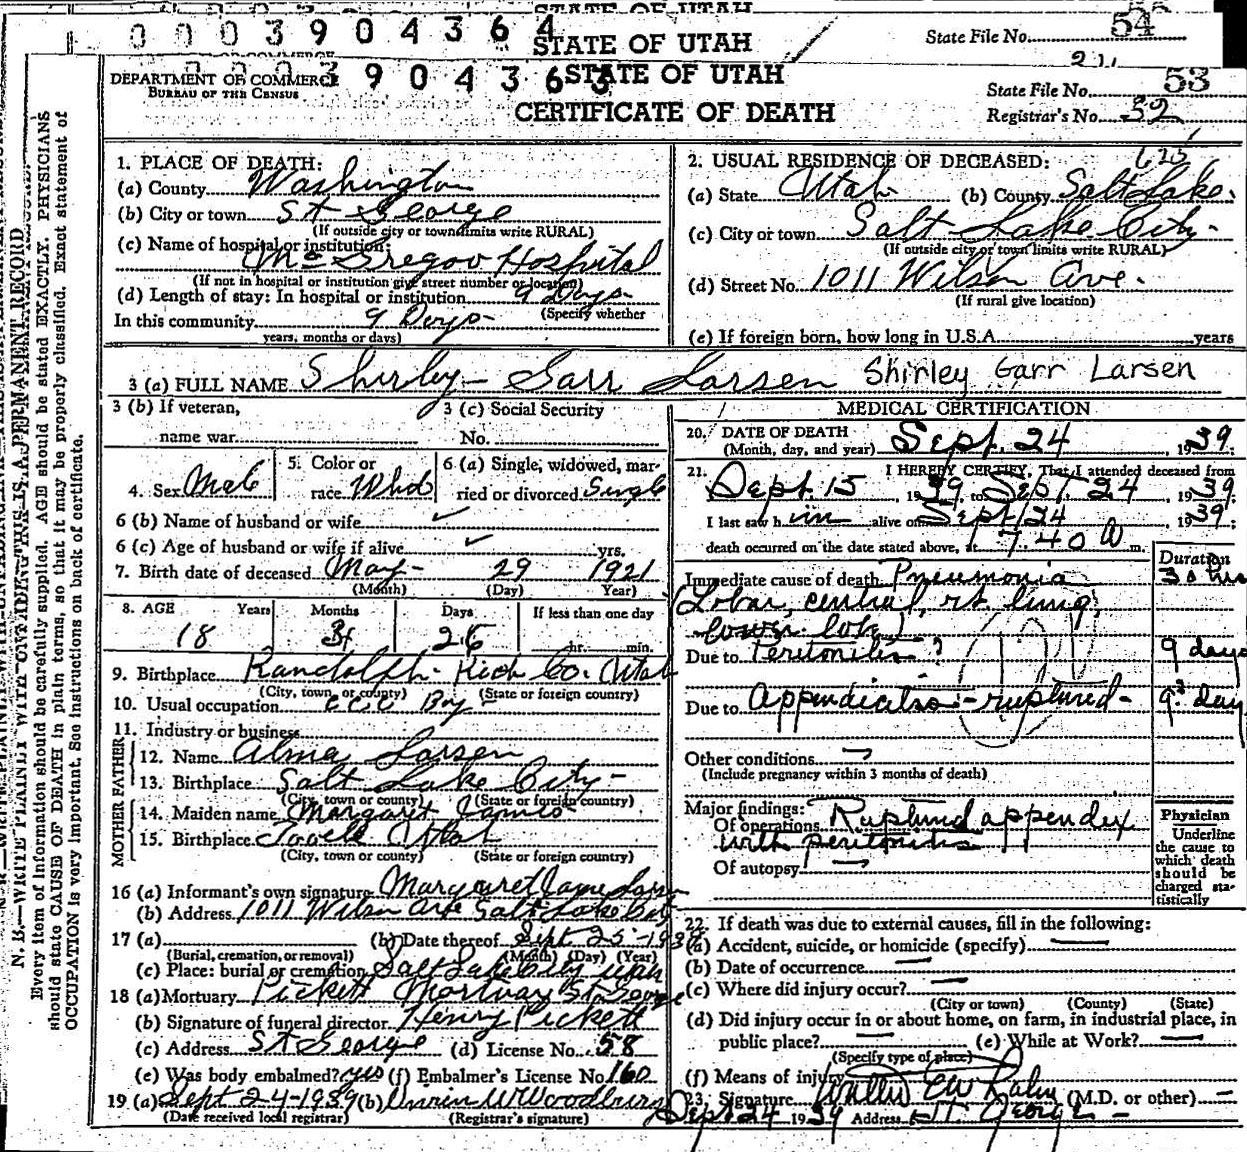 STATE OF UTAH
0003904364
STATE OF UTAH
State File No. 54
DEPARTMENT OF COMMERCE
BUREAU OF THE CENSUS
0003904363
STATE OF UTAH
CERTIFICATE OF DEATH
State File No. 53
Registrar's No. 32
N. B.—WRITE PLAINLY WITH UNFADING INK—THIS IS A PERMANENT RECORD
Every item of information should be carefully supplied. AGE should be stated EXACTLY. PHYSICIANS
should state CAUSE OF DEATH in plain terms, so that it may be properly classified. Exact statement of
OCCUPATION is very important. See instructions on back of certificate.
1. PLACE OF DEATH:
(a) County Washington
(b) City or town St George
(If outside city or town limits write RURAL)
(c) Name of hospital or institution:
McGregor Hospital
(If not in hospital or institution give street number or location)
(d) Length of stay: In hospital or institution 9 Days
(Specify whether
In this community 9 Days
years, months or days)
2. USUAL RESIDENCE OF DECEASED:
(a) State Utah (b) County Salt Lake
(c) City or town Salt Lake City
(If outside city or town limits write RURAL)
(d) Street No. 1011 Wilson Ave.
(If rural give location)
(e) If foreign born, how long in U.S.A. years
3 (a) FULL NAME Shirley Garr Larsen Shirley Garr Larsen
3 (b) If veteran,
name war
3 (c) Social Security
No.
4. Sex Male
5. Color or
race White
6 (a) Single, widowed, mar-
ried or divorced Single
6 (b) Name of husband or wife
6 (c) Age of husband or wife if alive yrs.
7. Birth date of deceased May 29 1921
(Month) (Day) Year)
8. AGE Years Months Days If less than one day
18 3 26 hr. min.
9. Birthplace Randolph Rich Co. Utah
(City, town, or county) (State or foreign country)
10. Usual occupation C.C.C Boy
11. Industry or business
FATHER
12. Name Alma Larsen
13. Birthplace Salt Lake City
(City, town or county) (State or foreign country)
MOTHER
14. Maiden name Margaret
15. Birthplace Utah
(City, town or county) (State or foreign country)
16 (a) Informant's own signature Margaret Larsen
(b) Address 1011 Wilson Ave Salt Lake City
17 (a) (b) Date thereof Sept 25-1939
(Burial, cremation, or removal) (Month) (Day) (Year)
(c) Place: burial or cremation Salt Lake City Utah
18 (a) Mortuary Pickett Mortuary St. George
(b) Signature of funeral director Henry Pickett
(c) Address St George (d) License No. 58
(e) Was body embalmed? yes (f) Embalmer's License No. 160
19 (a) Sept 24-1939 (b) W Woodbury
(Date received local registrar) (Registrar's signature)
MEDICAL CERTIFICATION
20. DATE OF DEATH
(Month, day, and year) Sept. 24, 1939.
21. I HEREBY CERTIFY, That I attended deceased from
Sept. 15, 1939 to Sept. 24, 1939;
I last saw him alive on Sept 24, 1939;
death occurred on the date stated above, at 740 A m.
Duration
Immediate cause of death Pneumonia 30 hrs
Lobar, central, rt. lung,
lower lobe)
Due to Peritonitis? 9 days
Due to Appendicitis - ruptured - 9 days
Other conditions
(Include pregnancy within 3 months of death)
Major findings:
Of operations Ruptured appendix
with peritonitis
Of autopsy
Physician
Underline
the cause to
which death
should be
charged sta-
tistically
22. If death was due to external causes, fill in the following:
(a) Accident, suicide, or homicide (specify)
(b) Date of occurrence
(c) Where did injury occur?
(City or town) (County) (State)
(d) Did injury occur in or about home, on farm, in industrial place, in
public place? (e) While at Work?
(Specify type of place)
(f) Means of injury
23. Signature (M.D. or other)
Sept 24 1939 Address St George